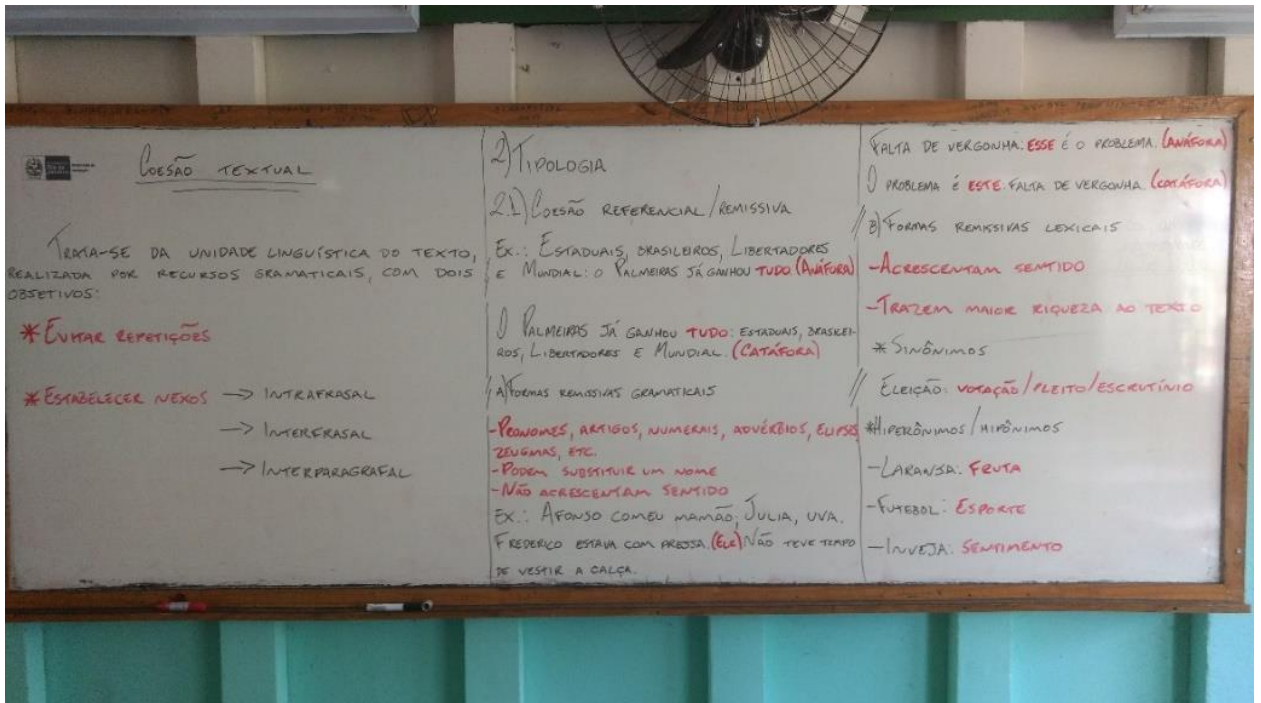 COESÃO TEXTUAL
TRATA-SE DA UNIDADE LINGUÍSTICA DO TEXTO,
REALIZADA POR RECURSOS GRAMATICAIS, COM DOIS
OBJETIVOS:
* EVITAR REPETIÇÕES
* ESTABELECER NEXOS -> INTRAFRASAL
-> INTERFRASAL
-> INTERPARAGRAFAL
2) TIPOLOGIA
2.1) COESÃO REFERENCIAL/REMISSIVA
EX.: ESTADUAIS, BRASILEIROS, LIBERTADORES
E MUNDIAL: O PALMEIRAS JÁ GANHOU TUDO. (ANÁFORA)
O PALMEIRAS JÁ GANHOU TUDO: ESTADUAIS, BRASILEI-
ROS, LIBERTADORES E MUNDIAL. (CATÁFORA)
A) FORMAS REMISSIVAS GRAMATICAIS
- PRONOMES, ARTIGOS, NUMERAIS, ADVÉRBIOS, ELIPSES,
ZEUGMAS, ETC.
- PODEM SUBSTITUIR UM NOME
- NÃO ACRESCENTAM SENTIDO
EX.: AFONSO COMEU MAMÃO; JULIA, UVA.
FREDERICO ESTAVA COM PRESSA. (ELE) NÃO TEVE TEMPO
DE VESTIR A CALÇA.
FALTA DE VERGONHA: ESSE É O PROBLEMA. (ANÁFORA)
O PROBLEMA É ESTE: FALTA DE VERGONHA. (CATÁFORA)
B) FORMAS REMISSIVAS LEXICAIS
- ACRESCENTAM SENTIDO
- TRAZEM MAIOR RIQUEZA AO TEXTO
* SINÔNIMOS
ELEIÇÃO: VOTAÇÃO/PLEITO/ESCRUTÍNIO
* HIPERÔNIMOS/HIPÔNIMOS
- LARANJA: FRUTA
- FUTEBOL: ESPORTE
- INVEJA: SENTIMENTO